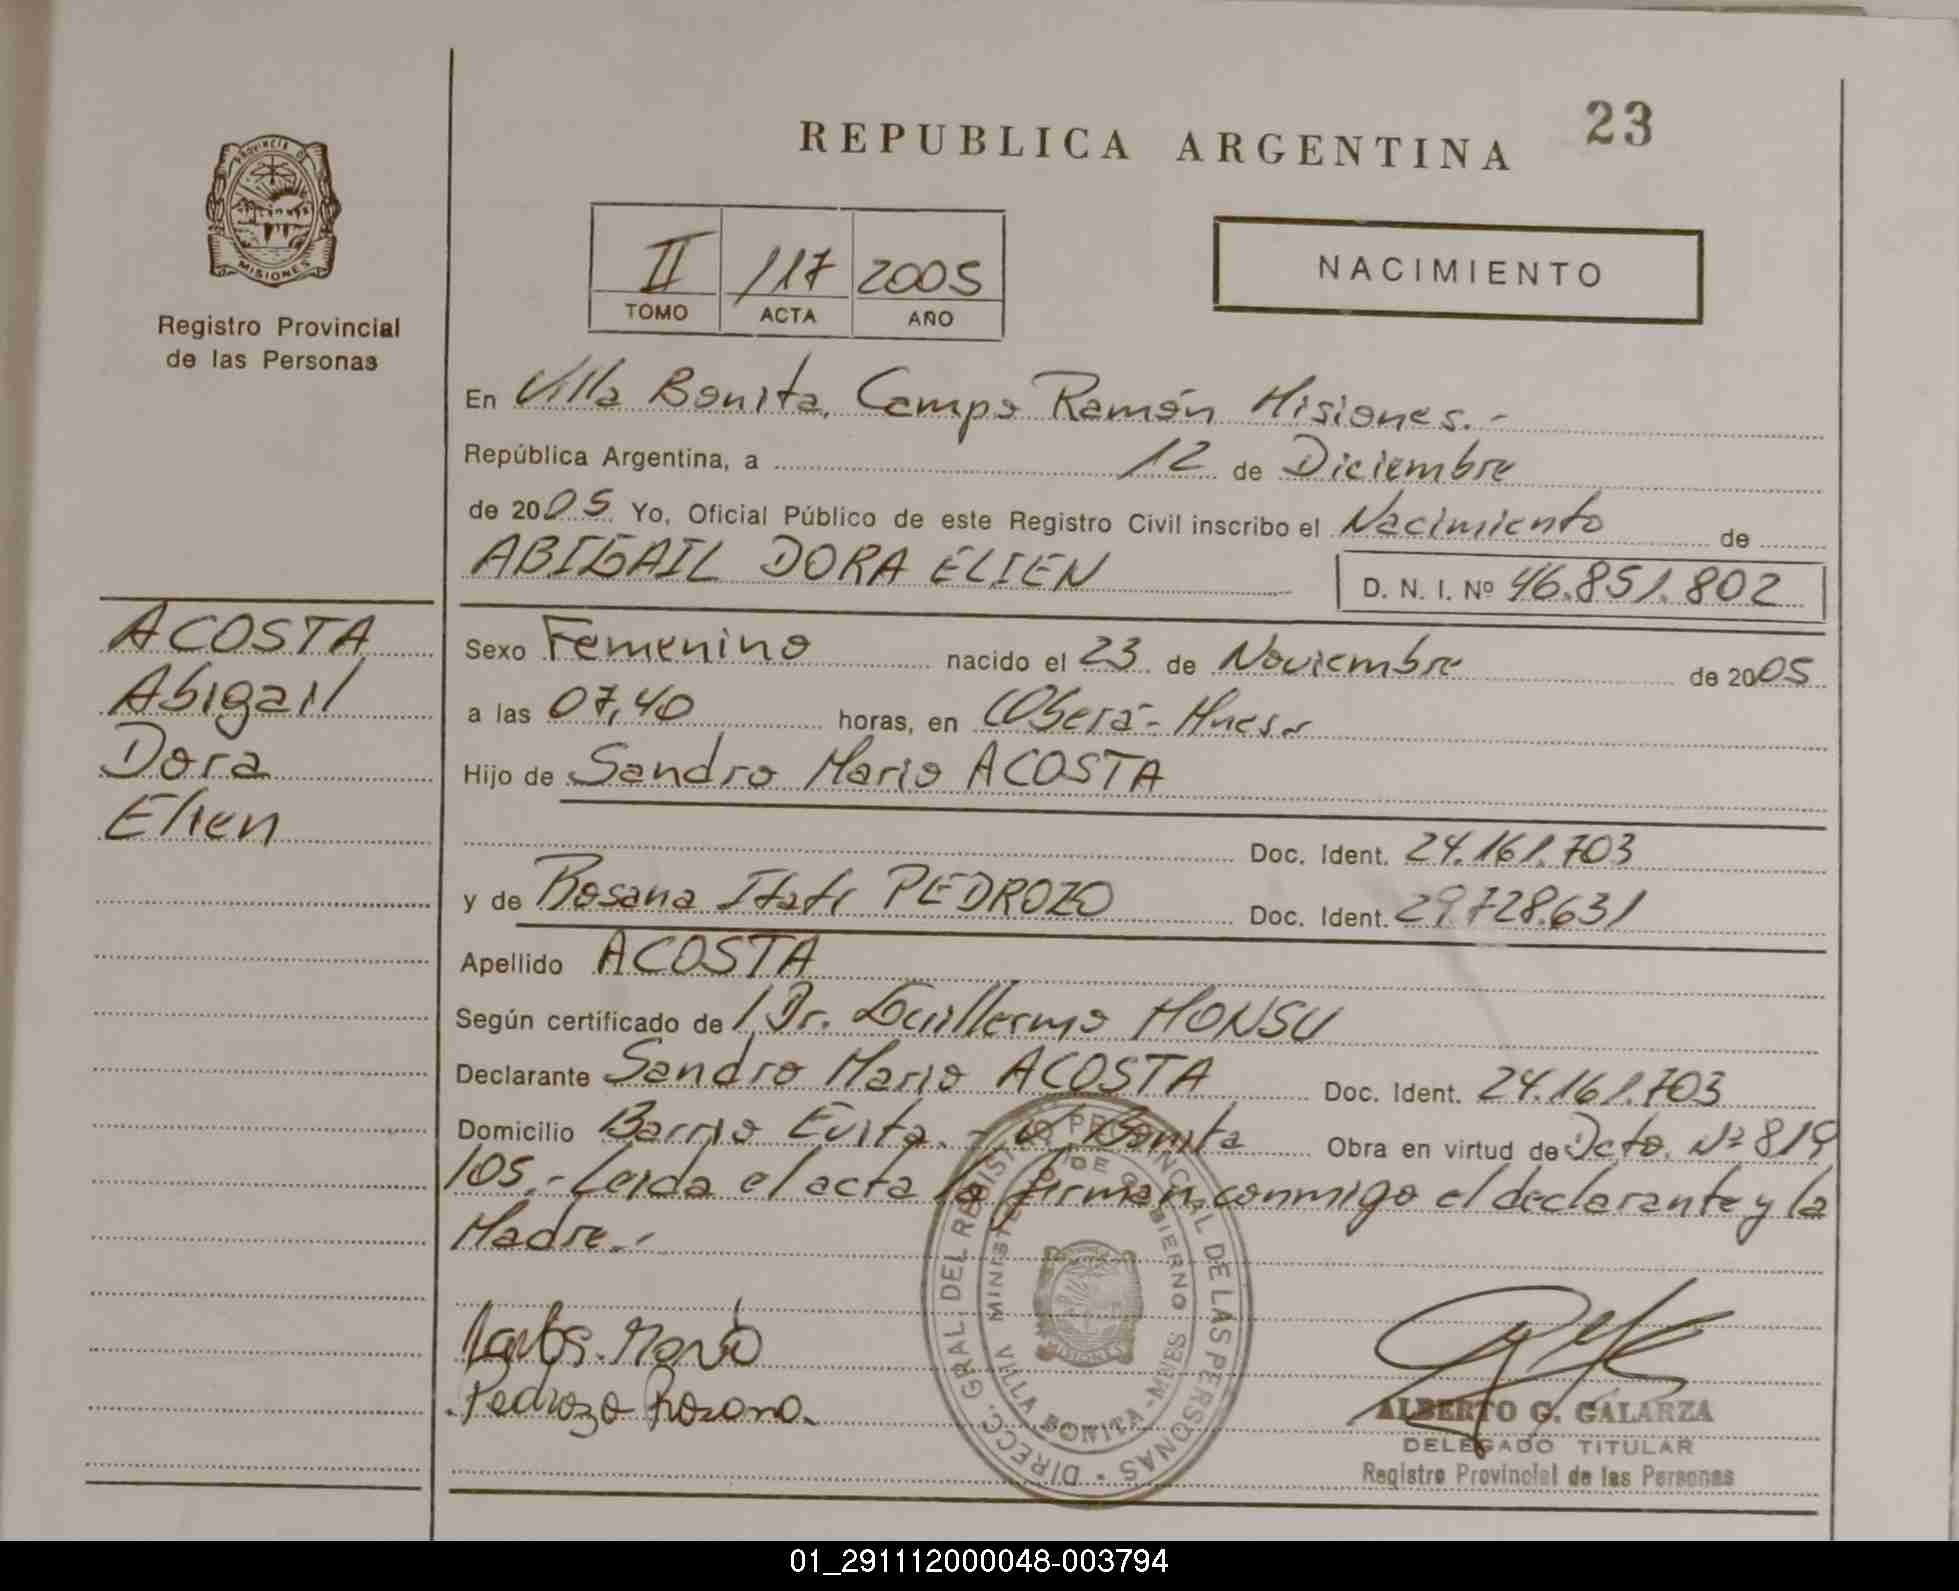 23
REPUBLICA ARGENTINA
PROVINCIA DE
MISIONES
Registro Provincial
de las Personas
II 117 2005
TOMO ACTA AÑO
NACIMIENTO
En Villa Bonita, Campo Ramón Misiones.-
República Argentina, a 12 de Diciembre
de 2005 Yo, Oficial Público de este Registro Civil inscribo el Nacimiento de
ABIGAIL DORA ELIEN D. N. I. Nº 46.851.802
ACOSTA
Abigail
Dora
Elien
Sexo Femenino nacido el 23 de Noviembre de 2005
a las 07,40 horas, en Oberá-Mnes.
Hijo de Sandro Mario ACOSTA
Doc. Ident. 24.161.703
y de Rosana Itati PEDROZO Doc. Ident. 29.728.631
Apellido ACOSTA
Según certificado de Dr. Guillermo MONSU
Declarante Sandro Mario ACOSTA Doc. Ident. 24.161.703
Domicilio Barrio Evita.- V. Bonita Obra en virtud de Dcto. Nº 819
105.- Leida el acta la firman conmigo el declarante y la
Madre.-
DIRECC. GRAL. DEL REGISTRO PROVINCIAL DE LAS PERSONAS
MINISTERIO DE GOBIERNO
VILLA BONITA - MNES
MISIONES
Pedrozo Rosana.
ALBERTO G. GALARZA
DELEGADO TITULAR
Registro Provincial de las Personas
01_291112000048-003794